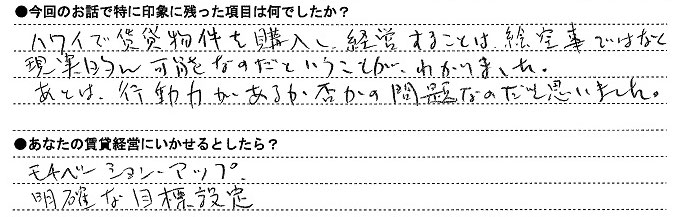 ●今回のお話で特に印象に残った項目は何でしたか？
ハワイで賃貸物件を購入し、経営することは絵空事ではなく
現実的に可能なのだということが、わかりました。
あとは、行動力があるか否かの問題なのだと思いました。
●あなたの賃貸経営にいかせるとしたら？
モチベーション・アップ、
明確な目標設定